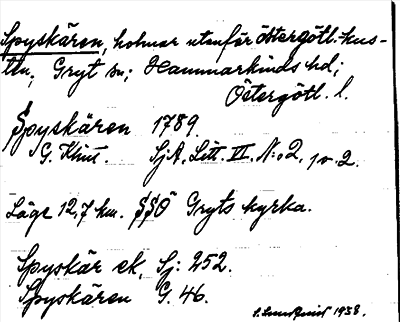 Spyskären, holmar utanför östergötl. kus-
ten, Gryt sn; Hammarkinds hd;
Östergötl. l.
Spyskären 1789.
G. Klint. SjA. Litt. III. N:o 2, 1 o 2.
Läge 12,7 km. SSÖ Gryts kyrka.
Spyskär ek. Sj: 252.
Spyskären G. 46.
1938.